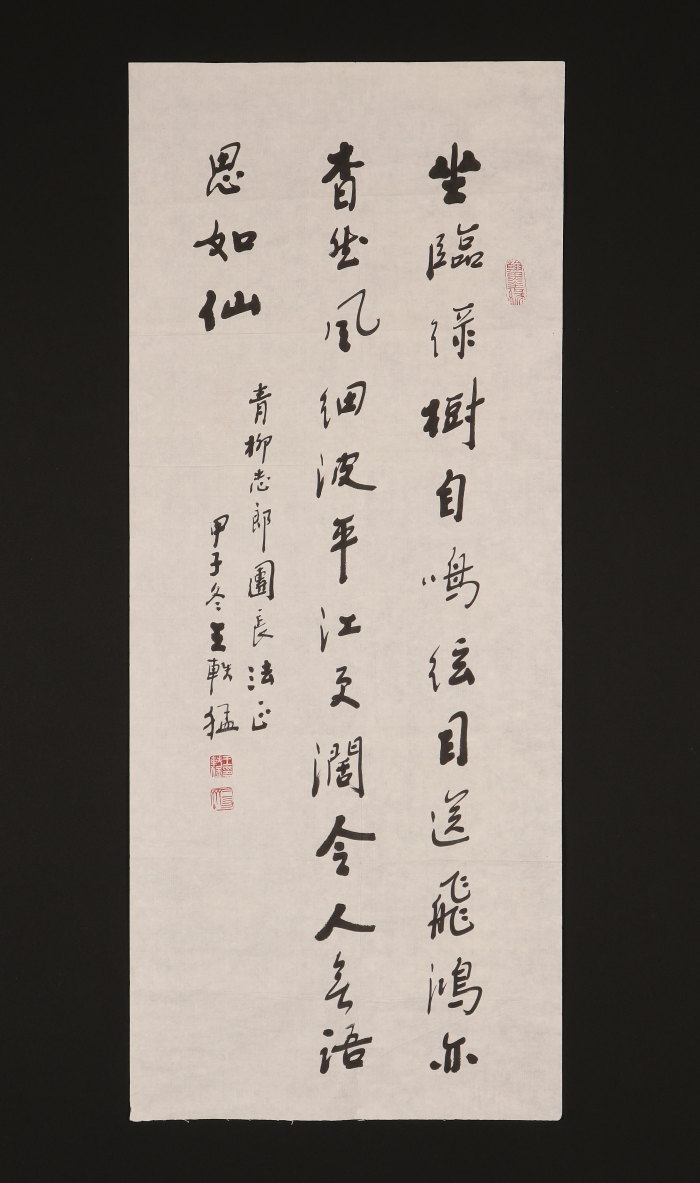 坐臨綠樹自鳴弦目送飛鴻亦
杳然風細波平江更濶令人無語
思如仙
青柳志郎團長法正
甲子冬王軼猛